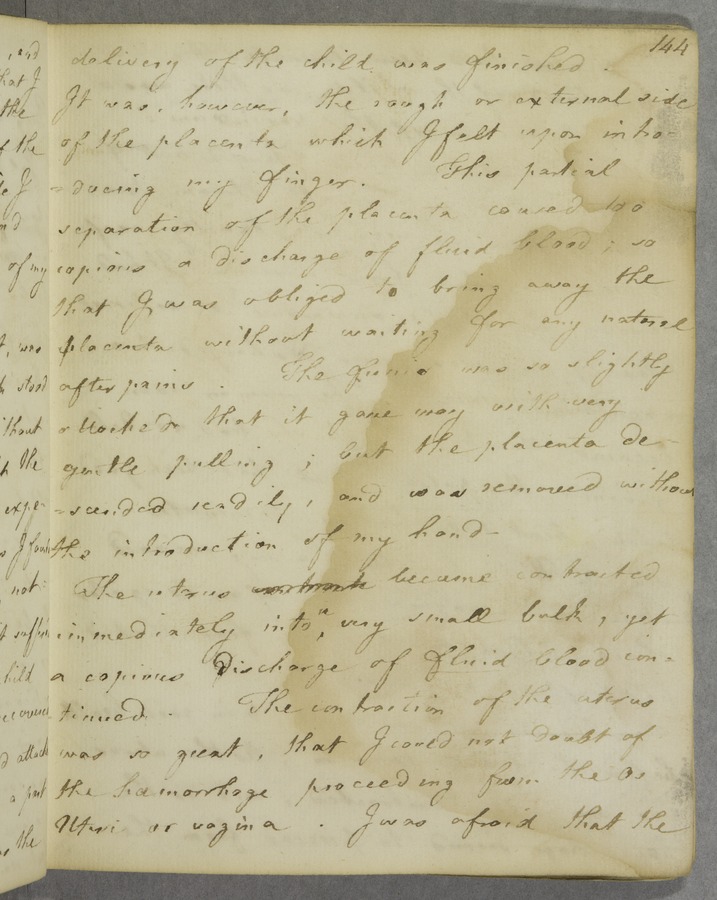 144
delivery of the child was finished.
It was, however, the rough or external side
of the placenta which I felt upon intro-
=ducing my finger. This partial
separation of the placenta caused too
copious a discharge of fluid blood; so
that I was obliged to bring away the
placenta without waiting for any natural
after pains. The funis was so slightly
attached that it gave way with very
gentle pulling; but the placenta de-
=scended readily, and was removed without
the introduction of my hand-
The uterus became contracted
immediately into a very small bulk, yet
a copious discharge of fluid blood con=
tinued. The contraction of the uterus
was so great, that I could not doubt of
the hæmorrhage proceeding from the os
Uteri or vagina. I was afraid that the
, and
that I
the
of the
I
nd
of my
, was
stood
ithout
the
exper
I found
not
suffi
hild
recovered
d attack
a part
, the